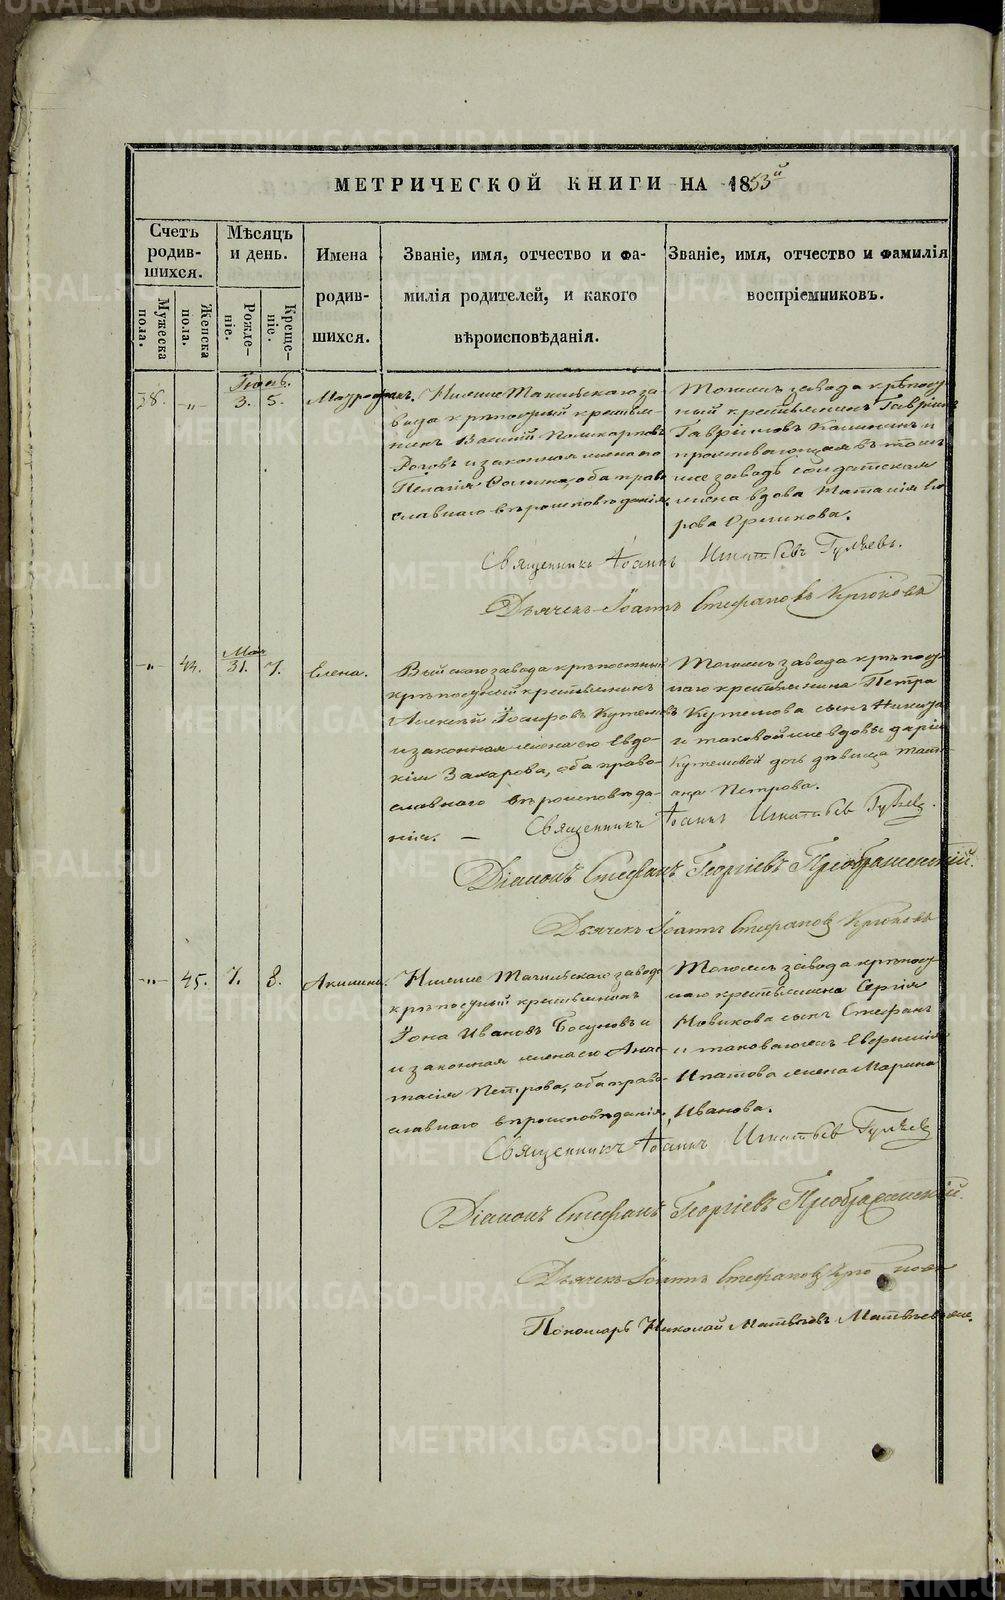 МЕТРИЧЕСКОЙ КНИГИ НА 1853й
Счетъ родив-шихся.
Мѣсяцъ и день.
Имена родив-шихся.
Званіе, имя, отчество и фа-
милія родителей, и какого
вѣроисповѣданія.
Званіе, имя, отчество и фамилія
воспріемниковъ.
Мужеска пола.
Женска пола.
Рожде-ніе.
Креще-ніе.
38. -„- 3. 5.
Нижне Тагильскаго за
вода крѣпостный крестья-
нинъ Василій Поликарповъ
Роговъ и законная жена его
Пелагія, оба право
славнаго вѣроисповѣданія.
Тогожъ завода крѣпост
ный крестьянинъ Гавріилъ
Гавріиловъ Калининъ и
проживающая въ томъ
же заводѣ солдатская
жена вдова Наталія
Священникъ Іоаннъ Игнатьевъ Гуляевъ.
Дьячекъ Іоаннъ Стефановъ Крюковъ
-„- 44. Мая 31. 7. Елена.
Выйскаго завода крѣпостный
крѣпостный крестьянинъ
Алексѣй Іосифовъ
и законная жена его Евдо-
кія Захарова, оба право-
славнаго вѣроисповѣда-
нія. —
Тогожъ завода крѣпост
наго крестьянина Петра
Кутемова сынъ Никита
и таковой же вдовы Даріи
Кутемовой дочь дѣвица
Петрова.
Священникъ Іоаннъ Игнатьевъ Гуляевъ.
Діаконъ Стефанъ Георгіевъ Преображенскій.
Дьячекъ Іоаннъ Стефановъ Крюковъ
-„- 45. 7. 8. Акилина.
Нижне Тагильскаго завода
крѣпостный крестьянинъ
Іона Ивановъ Босуновъ и
и законная жена его Анас
тасія Петрова, оба право-
славнаго вѣроисповѣданія.
Тогожъ завода крѣпост
наго крестьянина Сергія
Новикова сынъ Стефанъ
и таковагожъ
Ипатова жена Марина
Иванова.
Священникъ Іоаннъ Игнатьевъ Гуляевъ
Діаконъ Стефанъ Георгіевъ Преображенскій.
Дьячекъ Іоаннъ Стефановъ Крюковъ
Пономарь Николай Матвѣевъ
METRIKI.GASO-URAL.RU